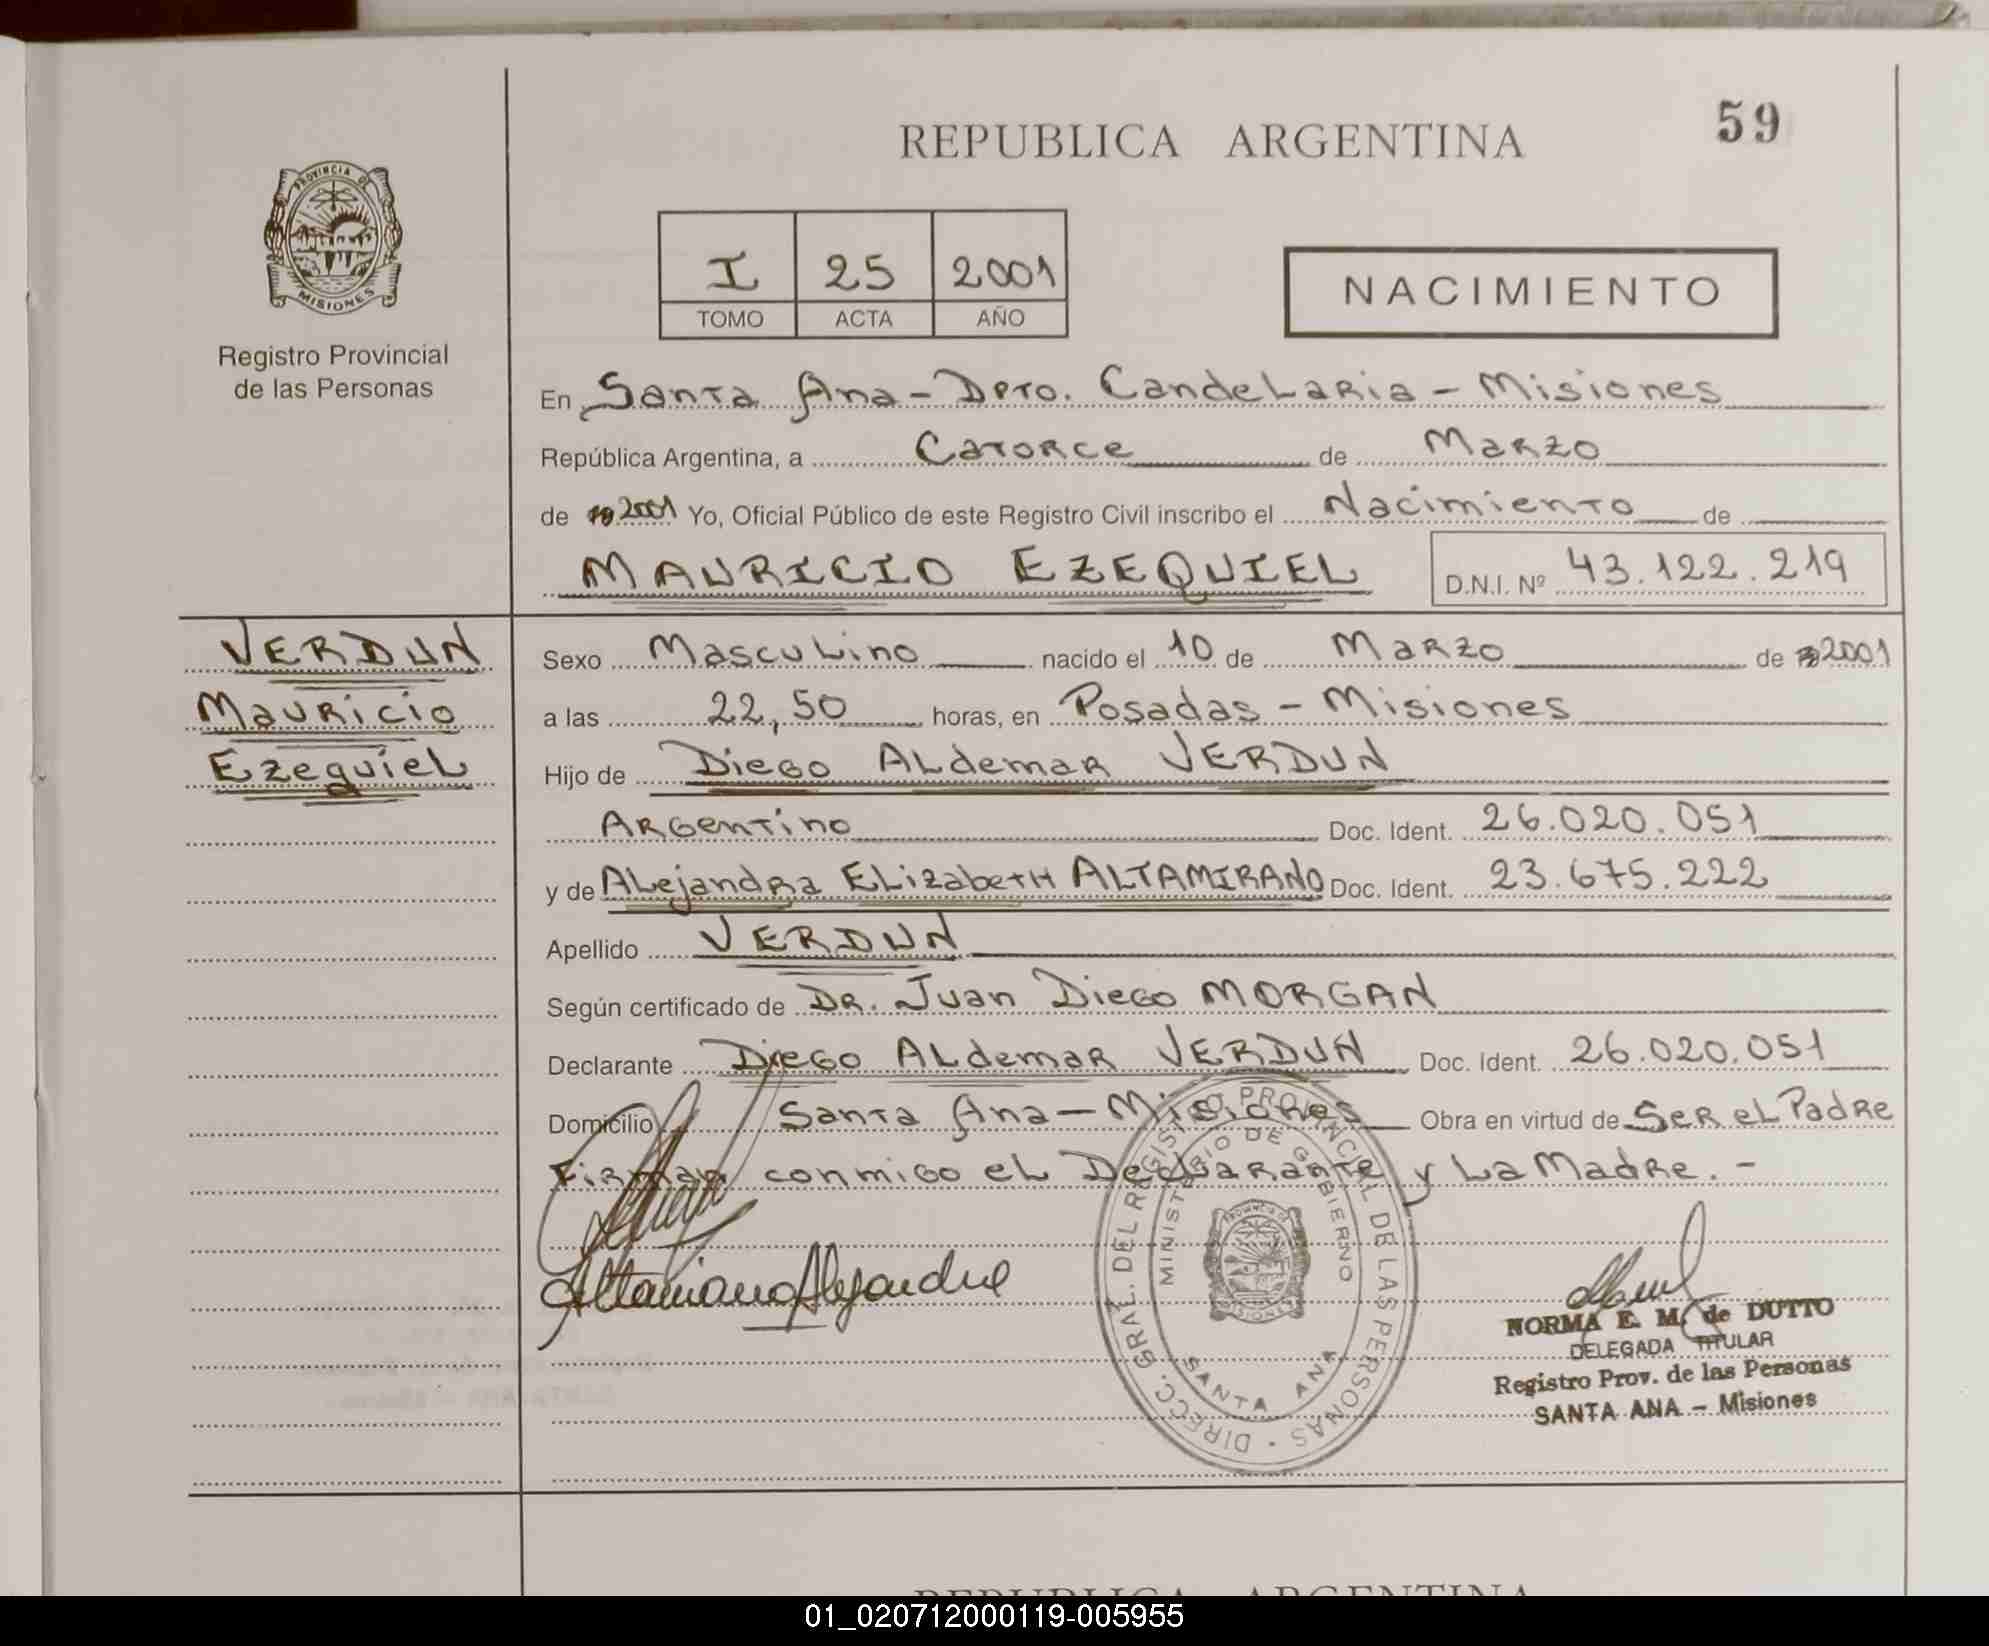 REPUBLICA ARGENTINA
59
PROVINCIA DE
MISIONES
Registro Provincial
de las Personas
I 25 2001
TOMO ACTA AÑO
NACIMIENTO
En Santa Ana - Dpto. Candelaria - Misiones
República Argentina, a Catorce de Marzo
de 2001 Yo, Oficial Público de este Registro Civil inscribo el Nacimiento de
MAURICIO EZEQUIEL D.N.I. Nº 43.122.219
VERDUN
Mauricio
Ezequiel
Sexo Masculino nacido el 10 de Marzo de 2001
a las 22,50 horas, en Posadas - Misiones
Hijo de Diego Aldemar VERDUN
Argentino Doc. Ident. 26.020.051
y de Alejandra Elizabeth ALTAMIRANO Doc. Ident. 23.675.222
Apellido VERDUN
Según certificado de Dr. Juan Diego MORGAN
Declarante Diego Aldemar VERDUN Doc. Ident. 26.020.051
Domicilio Santa Ana - Misiones Obra en virtud de Ser el Padre
Firman conmigo el Declarante y La Madre. -
Altamirano Alejandra
DIRECC. GRAL. DEL REGISTRO PROVINCIAL DE LAS PERSONAS
MINISTERIO DE GOBIERNO
PROVINCIA DE
MISIONES
SANTA ANA
NORMA E. M. de DUTTO
DELEGADA TITULAR
Registro Prov. de las Personas
SANTA ANA - Misiones
REPUBLICA ARGENTINA
01_020712000119-005955